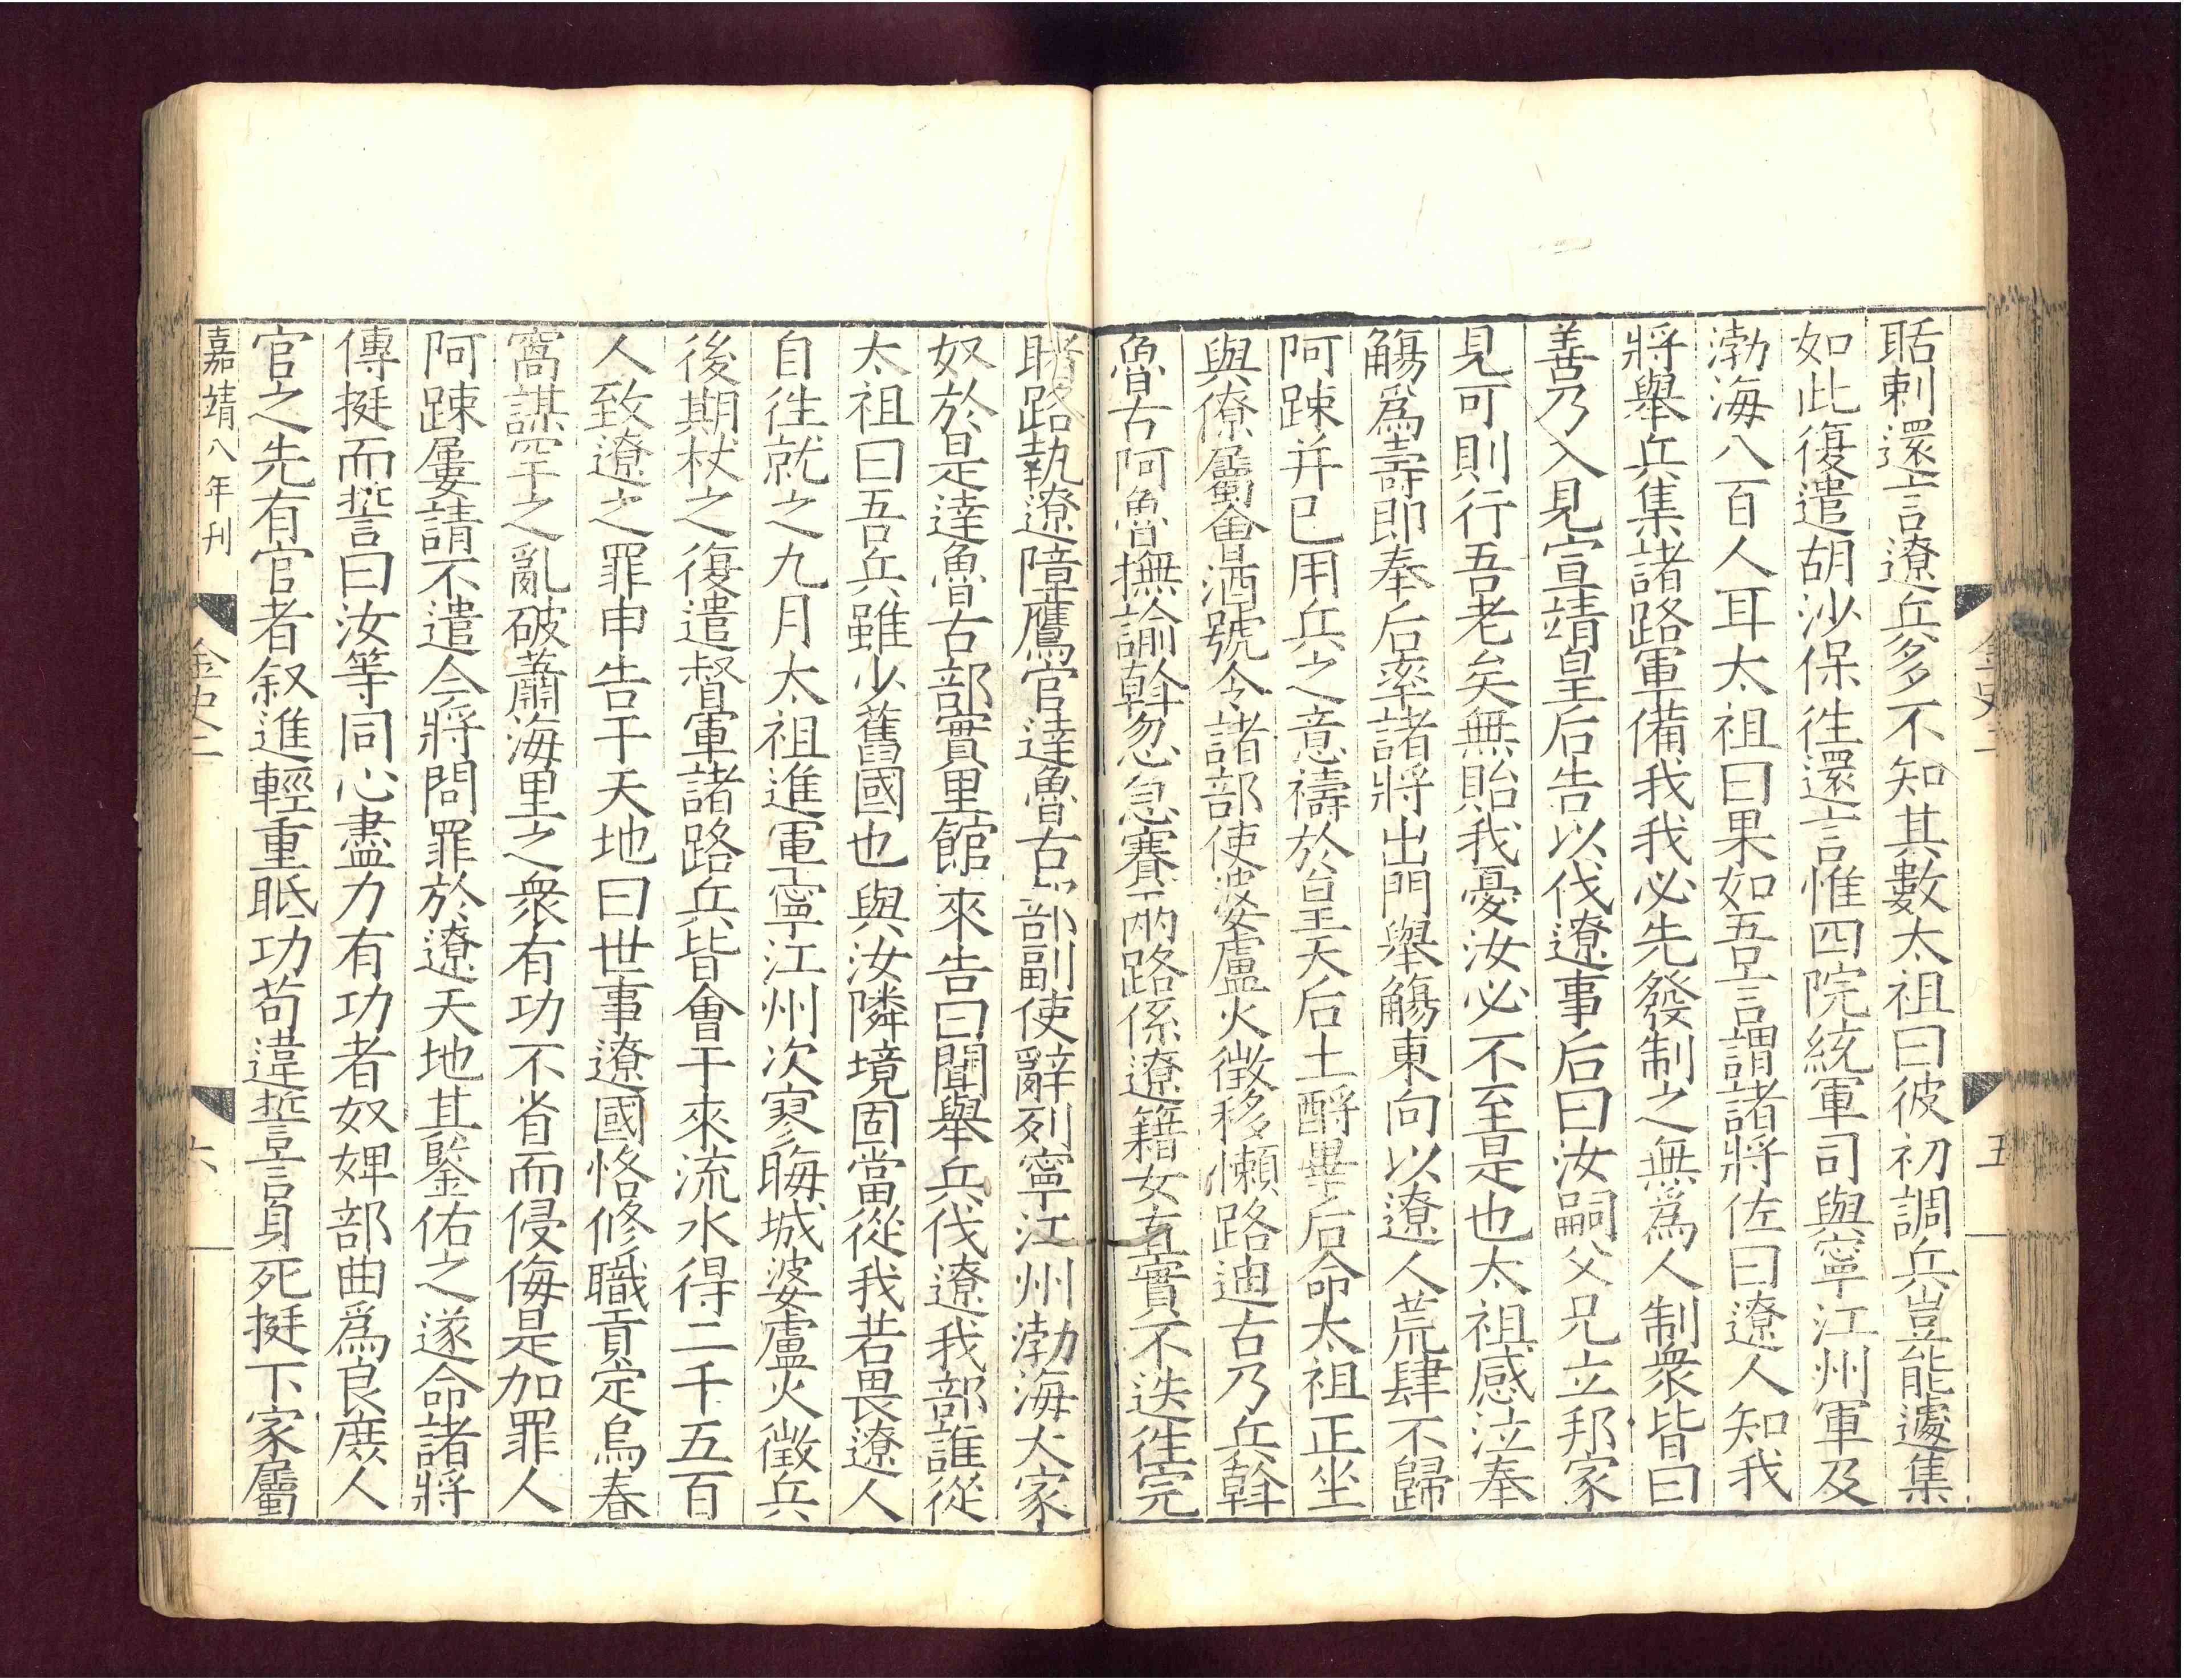 聒剌還言遼兵多不知其數太祖曰彼初調兵豈能遽集
如此復遣胡沙保徃還言惟四院統軍司與寧江州軍及
渤海八百人耳太祖曰果如吾言謂諸將佐曰遼人知我
將舉兵集諸路軍備我我必先發制之無爲人制衆皆曰
善乃入見宣靖皇后告以伐遼事后曰汝嗣父兄立邦家
見可則行吾老矣無貽我憂汝必不至是也太祖感泣奉
觴爲壽即奉后率諸將出門舉觴東向以遼人荒肆不歸
阿踈并已用兵之意禱於皇天后土酹畢后命太祖正坐
與僚屬會酒號令諸部使婆盧火徵移懶路迪古乃兵斡
魯古阿魯撫諭斡忽急賽兩路係遼籍女直實不迭徃完
睹路執遼障鷹官達魯古部副使辭列寧江州渤海大家
奴於是達魯古部實里館來告曰聞舉兵伐遼我部誰從
太祖曰吾兵雖少舊國也與汝隣境固當從我若畏遼人
自徃就之九月太祖進軍寧江州次寥晦城婆盧火徵兵
後期杖之復遣督軍諸路兵皆會于來流水得二千五百
人致遼之罪申告于天地曰世事遼國恪修職貢定烏春
窩謀罕之亂破蕭海里之衆有功不省而侵侮是加罪人
阿踈屢請不遣今將問罪於遼天地其鑒佑之遂命諸將
傳挺而誓曰汝等同心盡力有功者奴婢部曲爲良庻人
官之先有官者叙進輕重眂功苟違誓言身死挺下家屬
嘉靖八年刊
金史二
六
金史二
五